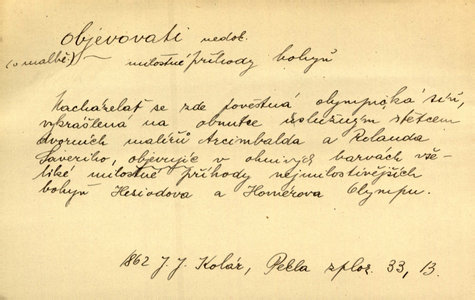 Objevovati nedok.
(o malbě:) — milostné příhody bohyň
Nacházelať se zde pověstná olympická síň,
vykrášlená na obnutce úslužným štětcem
dvorních malířů Arcimbalda a Rolanda
Saveriho, objevujíc v ohnivých barvách vše-
liké milostné příhody nejmilostivějších
bohyň Hesiodova a Homérova Olympu.
1862 J. J. Kolár, Pekla zploz. 33, 13.